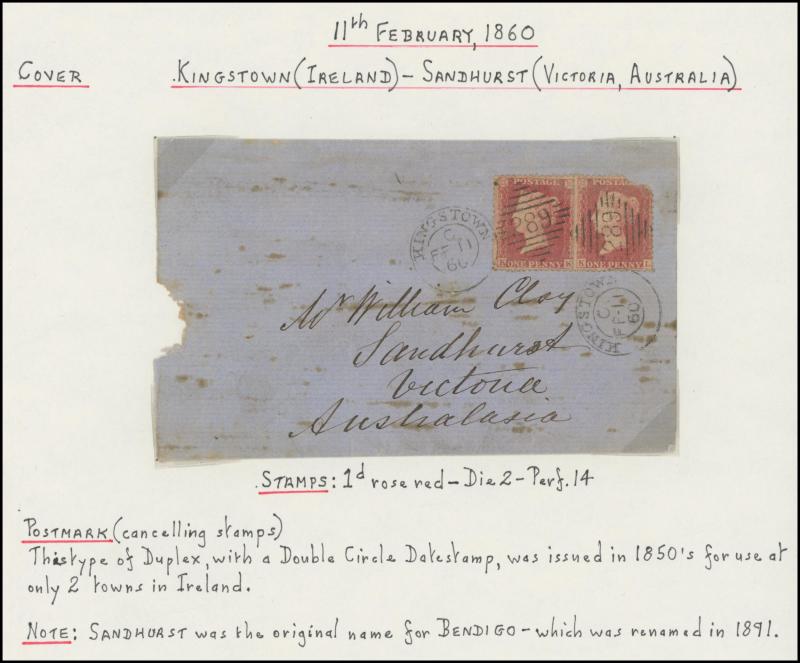 11th FEBRUARY, 1860
COVER KINGSTOWN (IRELAND) – SANDHURST (VICTORIA, AUSTRALIA)
POSTAGE POSTAGE
289 289
K ONE PENNY K K ONE PENNY L
KINGSTOWN
C
FE 11
60
KINGSTOWN
C
FE 11
60
Mr William Clay
Sandhurst
Victoria
Australasia
STAMPS: 1d rose red – Die 2 – Perf. 14
POSTMARK (cancelling stamps)
This type of Duplex, with a Double Circle Datestamp, was issued in 1850's for use at
only 2 towns in Ireland.
NOTE: SANDHURST was the original name for BENDIGO – which was renamed in 1891.